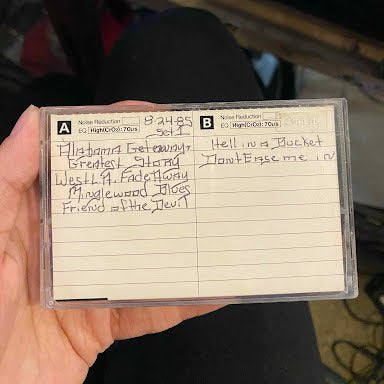 A Noise Reduction 8-24-85
EQ High(CrO₂):70µs Set 1
Alabama Getaway,
Greatest Story
West L.A. Fade Away
Minglewood Blues
Friend of the Devil
B Noise Reduction
EQ High(CrO₂):70µs
Hell in a Bucket
Dont Ease me in